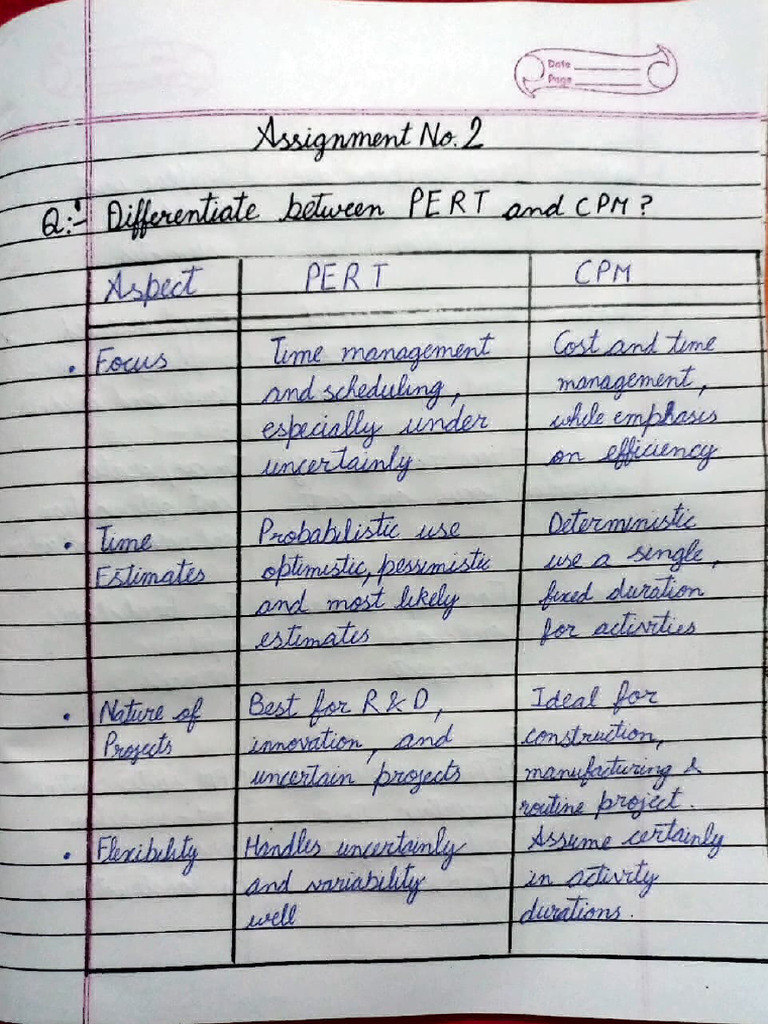 Date
Page
Assignment No. 2
Q:- Differentiate between PERT and CPM?
Aspect
PERT
CPM
• Focus
Time management
and scheduling,
especially under
uncertainly.
Cost and time
management,
while emphasis
on efficiency
• Time
Estimates
Probabilistic use
optimistic, pessimistic
and most likely
estimates
Deterministic
use a single,
fixed duration
for activities
• Nature of
Projects
Best for R & D,
innovation, and
uncertain projects
Ideal for
construction,
manufacturing &
routine project.
• Flexibility
Handles uncertainly
and variability
well
Assume certainly
in activity
durations.